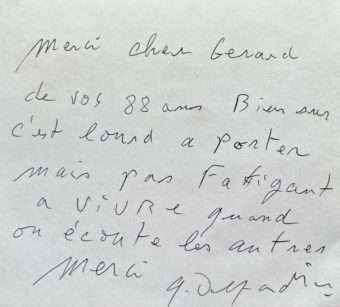 Merci cher Gerard
de vos 88 ans Bien sur
c'est lourd a porter
mais pas Fatigant
a ViVRE quand
on écoute les autres
Merci